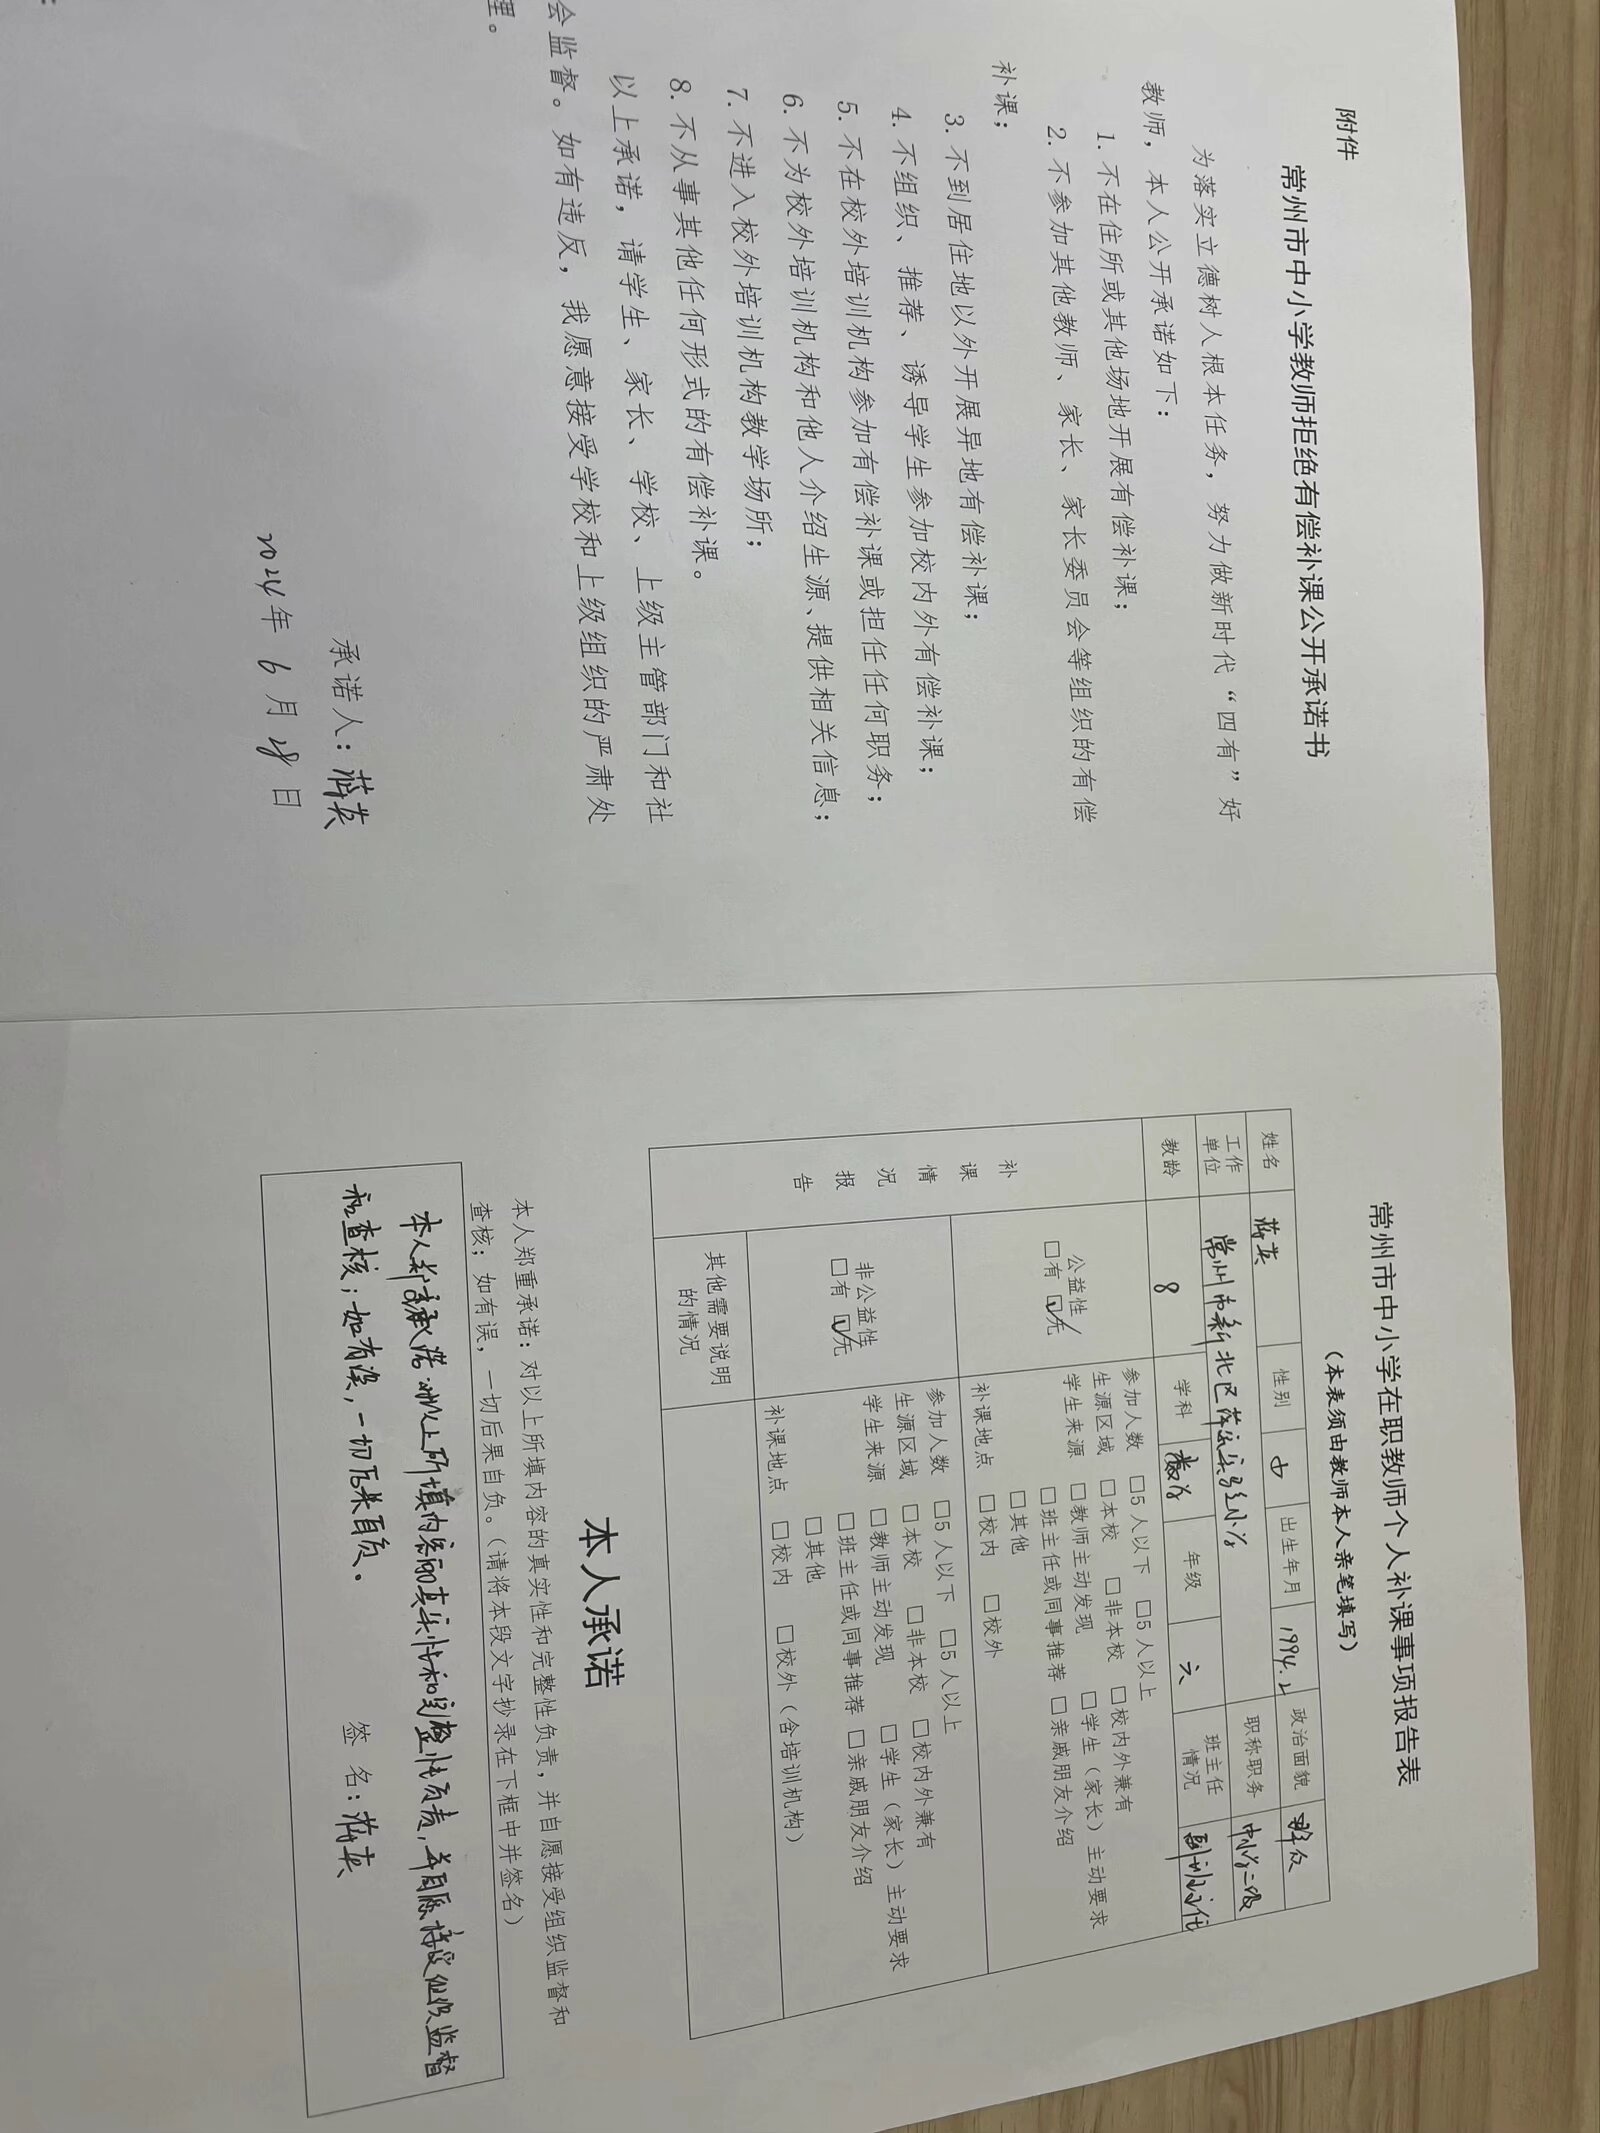 附件
常州市中小学教师拒绝有偿补课公开承诺书
为落实立德树人根本任务，努力做新时代“四有”好
教师，本人公开承诺如下：
1.不在住所或其他场地开展有偿补课；
2.不参加其他教师、家长、家长委员会等组织的有偿
补课；
3.不到居住地以外开展异地有偿补课；
4.不组织、推荐、诱导学生参加校内外有偿补课；
5.不在校外培训机构参加有偿补课或担任任何职务；
6.不为校外培训机构和他人介绍生源、提供相关信息；
7.不进入校外培训机构教学场所；
8.不从事其他任何形式的有偿补课。
以上承诺，请学生、家长、学校、上级主管部门和社
会监督。如有违反，我愿意接受学校和上级组织的严肃处
理。
承诺人：蒋英
2024年 6 月 28 日
常州市中小学在职教师个人补课事项报告表
（本表须由教师本人亲笔填写）
姓名 蒋英 性别 女 出生年月 1994.2 政治面貌 群众
工作单位 常州市新北区薛家实验小学 职称职务 中小学二级
教龄 8 学科 数学 年级 六 班主任情况 副班主任
补课情况报告
公益性
□有 ☑无
参加人数 □5人以下 □5人以上
生源区域 □本校 □非本校 □校内外兼有
学生来源 □教师主动发现 □学生（家长）主动要求
□班主任或同事推荐 □亲戚朋友介绍
□其他
补课地点 □校内 □校外
非公益性
□有 ☑无
参加人数 □5人以下 □5人以上
生源区域 □本校 □非本校 □校内外兼有
学生来源 □教师主动发现 □学生（家长）主动要求
□班主任或同事推荐 □亲戚朋友介绍
□其他
补课地点 □校内 □校外（含培训机构）
其他需要说明
的情况
本人承诺
本人郑重承诺：对以上所填内容的真实性和完整性负责，并自愿接受组织监督和
查核；如有误，一切后果自负。（请将本段文字抄录在下框中并签名）
本人郑重承诺：对以上所填内容的真实性和完整性负责，并自愿接受组织监督
和查核；如有误，一切后果自负。
签 名：蒋英